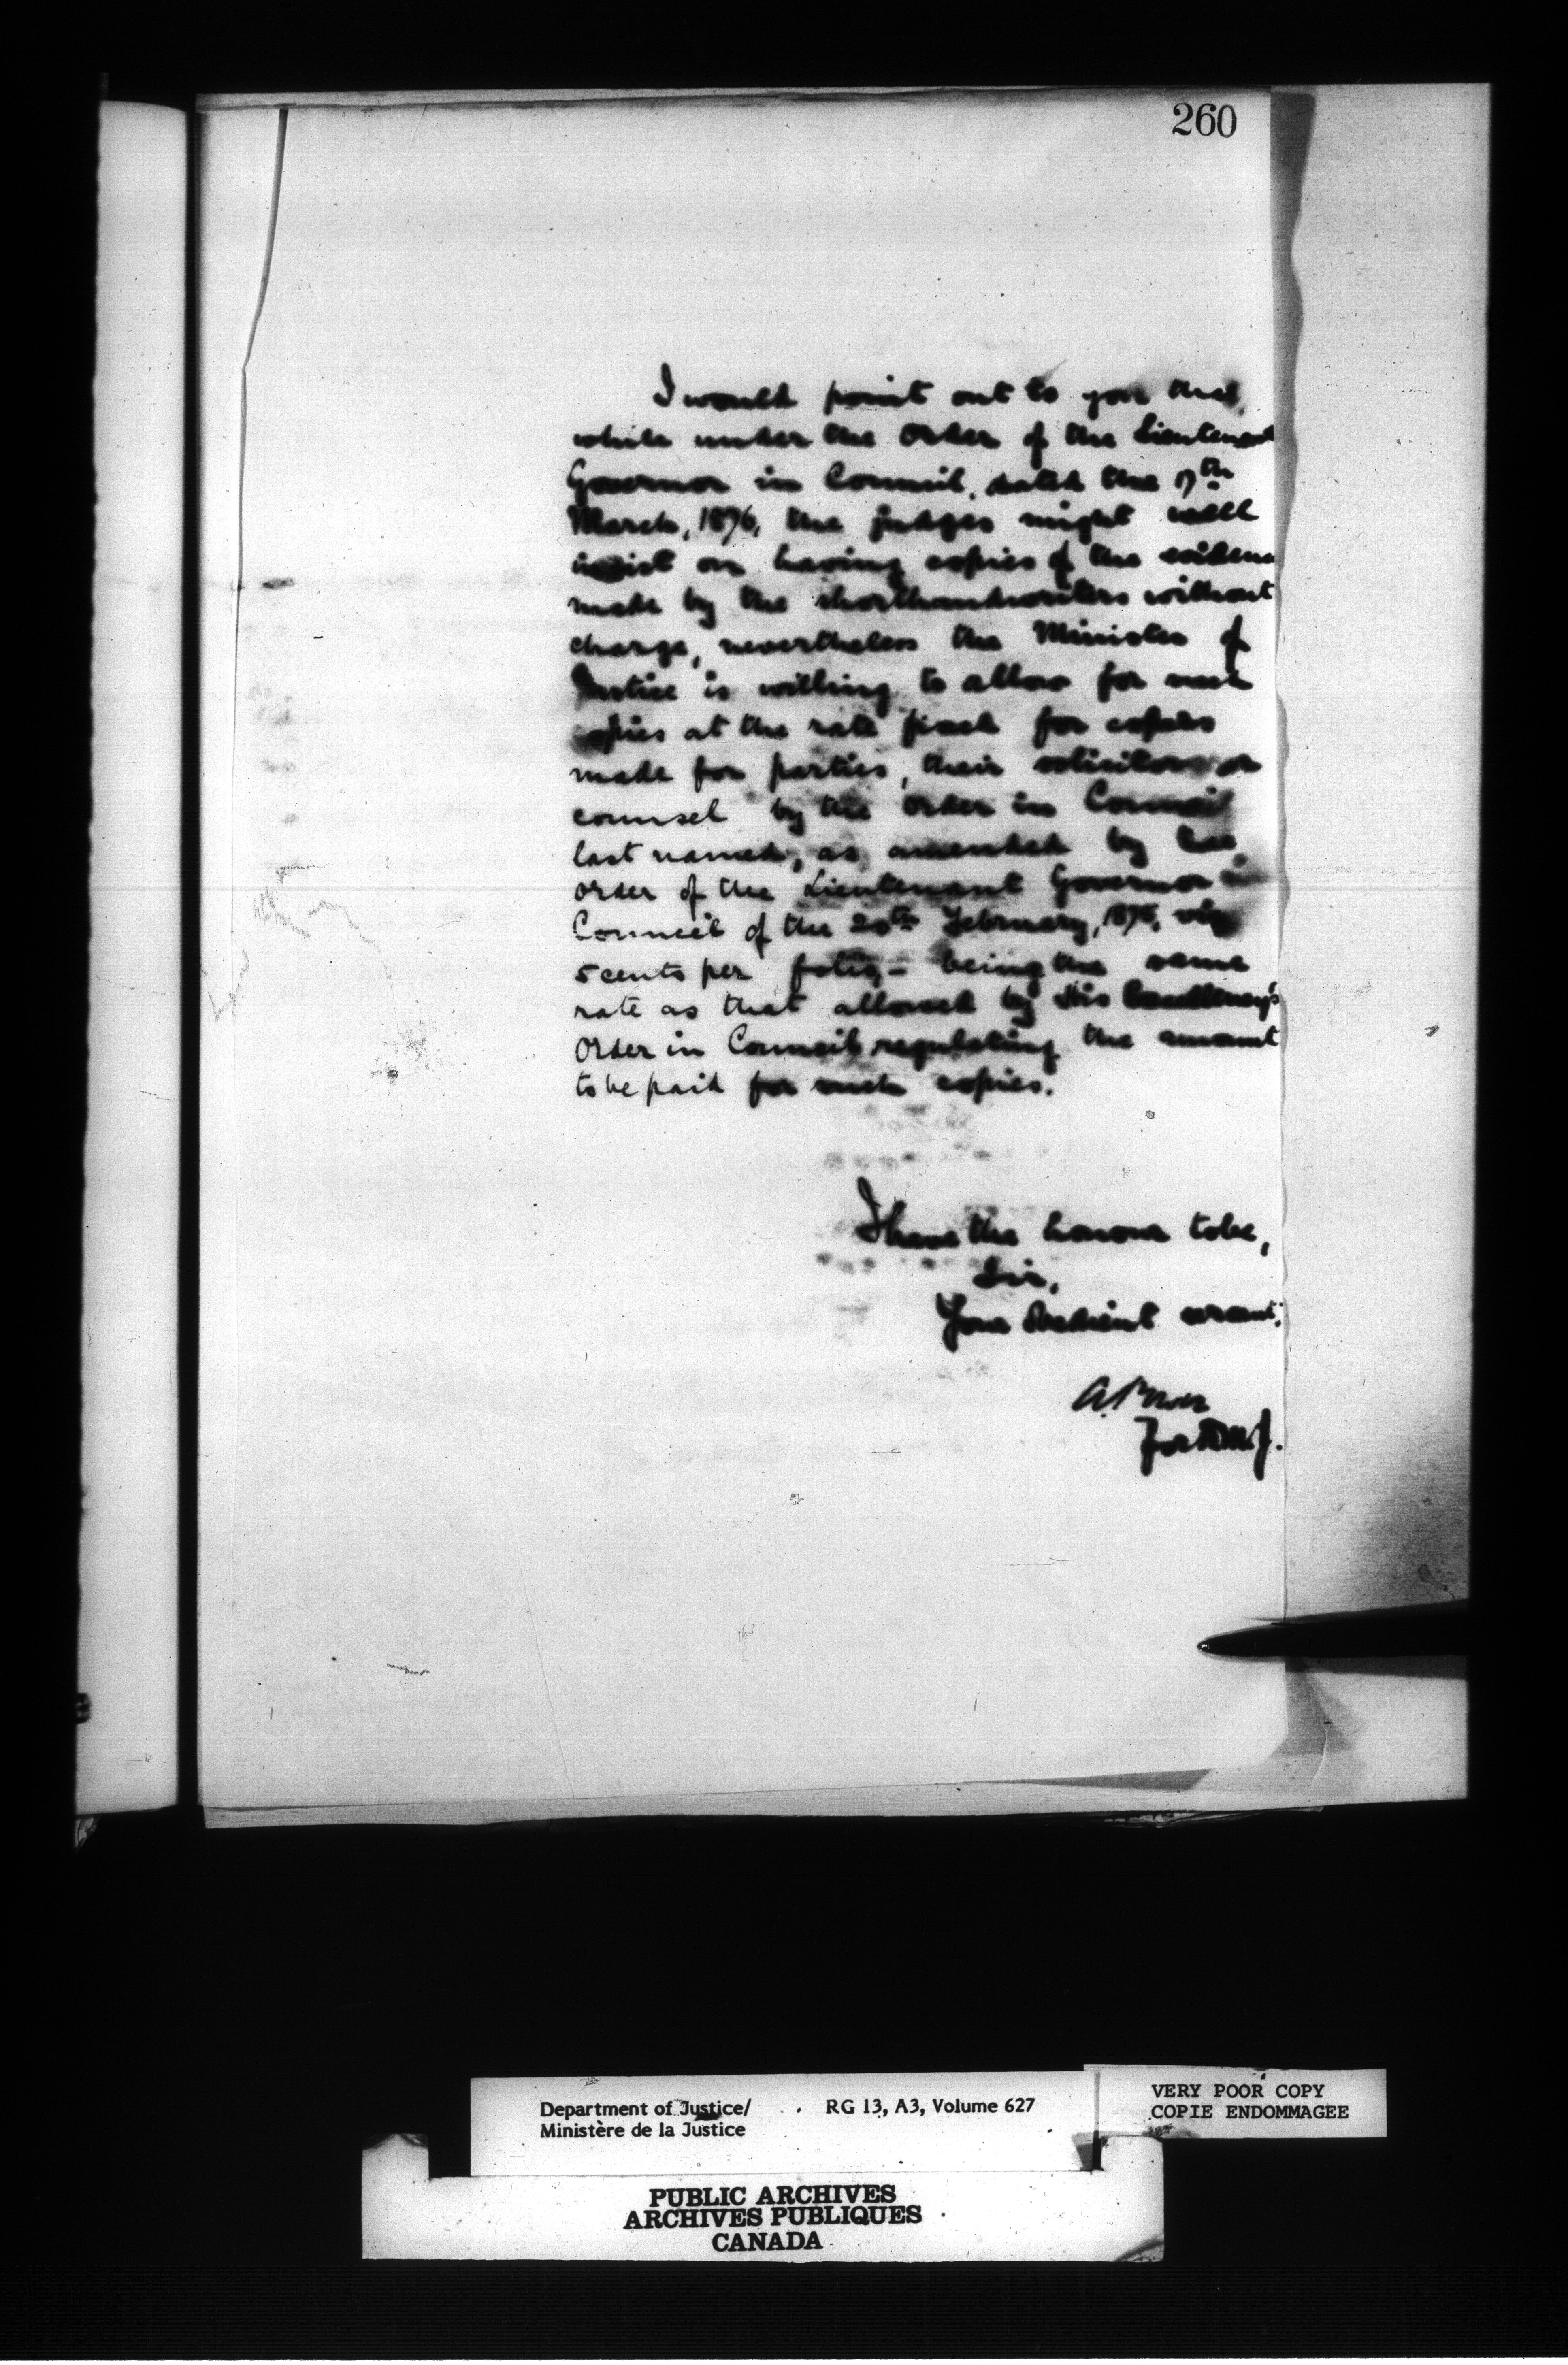 260
I would point out to you that,
while under the Order of the Lieutenant
Governor in Council, dated the 17th
March, 1876, the judges might well
insist on having copies of the evidence
made by the shorthandwriters without
charge, nevertheless the Minister of
Justice is willing to allow for such
copies at the rate fixed for copies
made for parties, their solicitors or
counsel by the Order in Council
last named, as amended by the
Order of the Lieutenant Governor in
Council of the 20th February, viz
5 cents per folio,- being the same
rate as that allowed by His Excellency's
Order in Council regulating the amount
to be paid for such copies.
I have the honour to be,
Sir,
Your obedient servant,
A. Power
For D.M.J.
Department of Justice/ RG 13, A3, Volume 627
Ministère de la Justice
VERY POOR COPY
COPIE ENDOMMAGEE
PUBLIC ARCHIVES
ARCHIVES PUBLIQUES
CANADA